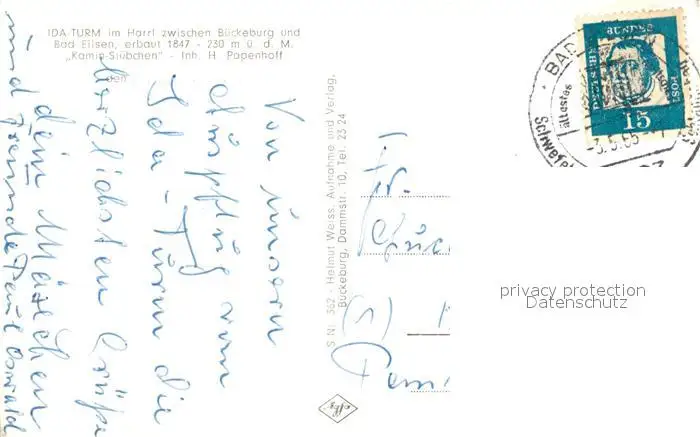 IDA-TURM im Harrl zwischen Bückeburg und
Bad Eilsen, erbaut 1847 - 230 m ü. d. M.
„Kamin-Stübchen" - Inh. H. Papenhoff
Von unserm
Ausflug vom
Ida-Turm die
herzlichsten Grüße
dein Mädchen
und Freunde Paul Oswald
S Nr. 362 - Helmut Weiss, Aufnahme und Verlag,
Bückeburg, Dammstr. 10, Tel. 23 24
Fr.
(1)
DEUTSCHE BUNDESPOST
15
BAD
ältestes
Schwefel
privacy protection
Datenschutz